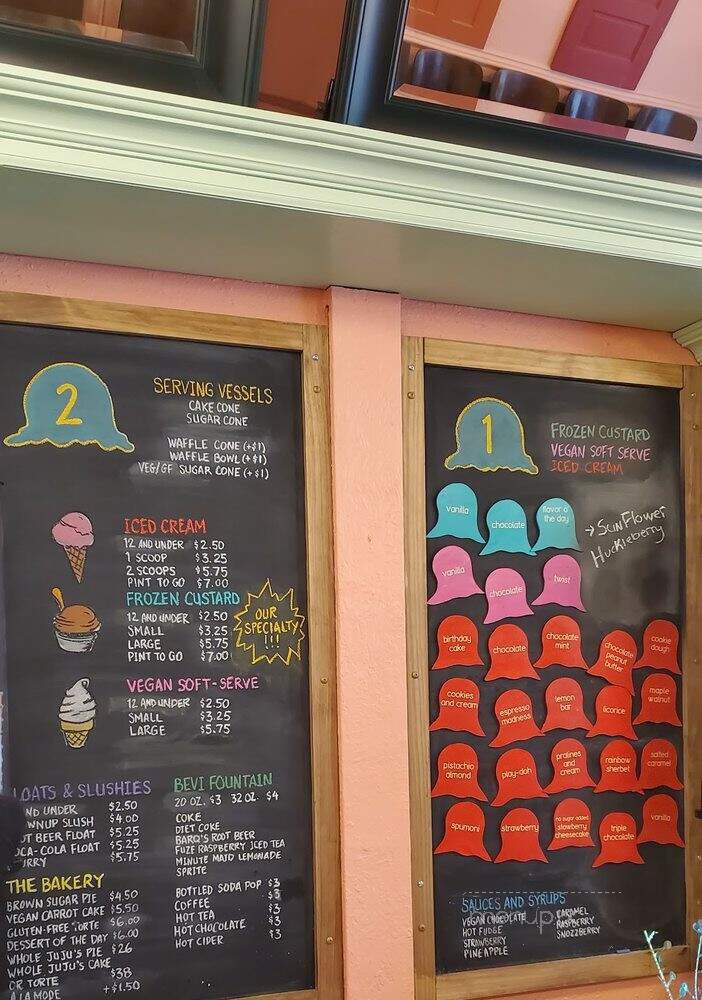 2
SERVING VESSELS
CAKE CONE
SUGAR CONE
WAFFLE CONE (+$1)
WAFFLE BOWL (+$1)
VEG/GF SUGAR CONE (+$1)
ICED CREAM
12 AND UNDER $2.50
1 SCOOP $3.25
2 SCOOPS $5.75
PINT TO GO $7.00
FROZEN CUSTARD
12 AND UNDER $2.50
SMALL $3.25
LARGE $5.75
PINT TO GO $7.00
OUR
SPECIALTY
!!!
VEGAN SOFT-SERVE
12 AND UNDER $2.50
SMALL $3.25
LARGE $5.75
LOATS & SLUSHIES
ND UNDER $2.50
WNUP SLUSH $4.00
OT BEER FLOAT $5.25
OCA-COLA FLOAT $5.25
URRY $5.75
THE BAKERY
BROWN SUGAR PIE $4.50
VEGAN CARROT CAKE $5.50
GLUTEN-FREE TORTE $6.00
DESSERT OF THE DAY $6.00
WHOLE JUJU'S PIE $26
WHOLE JUJU'S CAKE
OR TORTE $38
A LA MODE +$1.50
BEVI FOUNTAIN
20 OZ. $3 32 OZ. $4
COKE
DIET COKE
BARQ'S ROOT BEER
FUZE RASPBERRY ICED TEA
MINUTE MAID LEMONADE
SPRITE
BOTTLED SODA POP $3
COFFEE $3
HOT TEA $3
HOT CHOCOLATE $3
HOT CIDER $3
1
FROZEN CUSTARD
VEGAN SOFT SERVE
ICED CREAM
vanilla
chocolate
flavor o
the day
→ SunFlower
Huckleberry
vanilla
chocolate
twist
birthday
cake
chocolate
chocolate
mint
chocolate
peanut
butter
cookie
dough
cookies
and cream
espresso
madness
lemon
bar
licorice
maple
walnut
pistachio
almond
play-doh
pralines
and
cream
rainbow
sherbet
salted
caramel
spumoni
strawberry
no sugar added
strawberry
cheesecake
triple
chocolate
vanilla
SAUCES AND SYRUPS
VEGAN CHOCOLATE
HOT FUDGE
STRAWBERRY
PINEAPPLE
CARAMEL
RASPBERRY
SNOZZBERRY